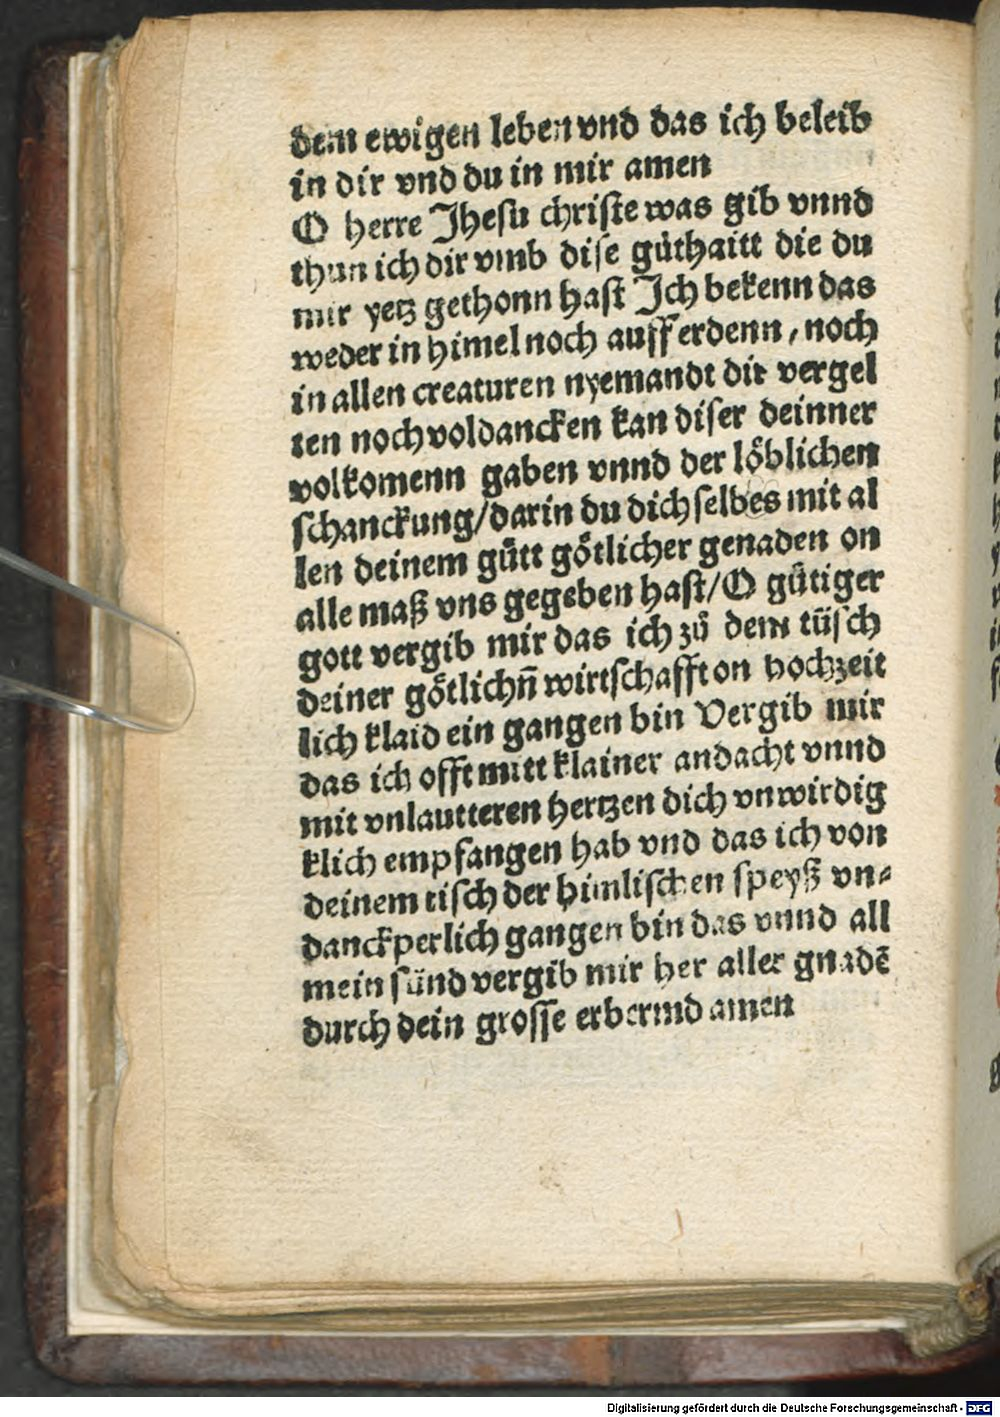 dem ewigen leben vnd das ich beleib
in dir vnd du in mir amen
O herre Jhesu christe was gib vnnd
thun ich dir vmb dise gůthaitt die du
mir yetz gethonn hast Jch bekenn das
weder in himel noch auff erdenn / noch
in allen creaturen nyemandt dir vergel
ten noch voldancken kan diser deinner
volkomenn gaben vnnd der löblichen
schanckung / darin du dich selbes mit al
len deinem gůtt götlicher genaden on
alle maß vns gegeben hast / O gütiger
gott vergib mir das ich zů dem tüsch
deiner götlichn̄ wirtschafft on hochzeit
lich klaid ein gangen bin Vergib mir
das ich offt mitt klainer andacht vnnd
mit vnlautteren hertzen dich vnwirdig
klich empfangen hab vnd das ich von
deinem tisch der himlischen speyß vn⸗
danckperlich gangen bin das vnnd all
mein sünd vergib mir her aller gnadē
durch dein grosse erbermd amen
Digitalisierung gefördert durch die Deutsche Forschungsgemeinschaft - DFG